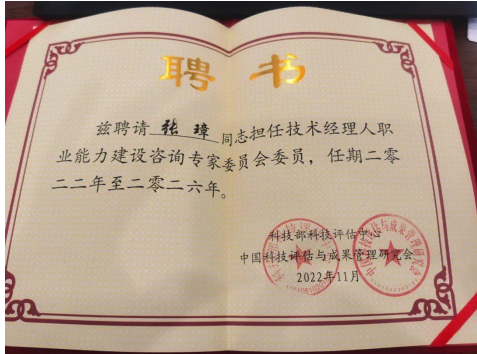 聘书
兹聘请 张璋 同志担任技术经理人职
业能力建设咨询专家委员会委员，任期二零
二二年至二零二六年。
科技部科技评估中心
中国科技评估与成果管理研究会
2022年11月